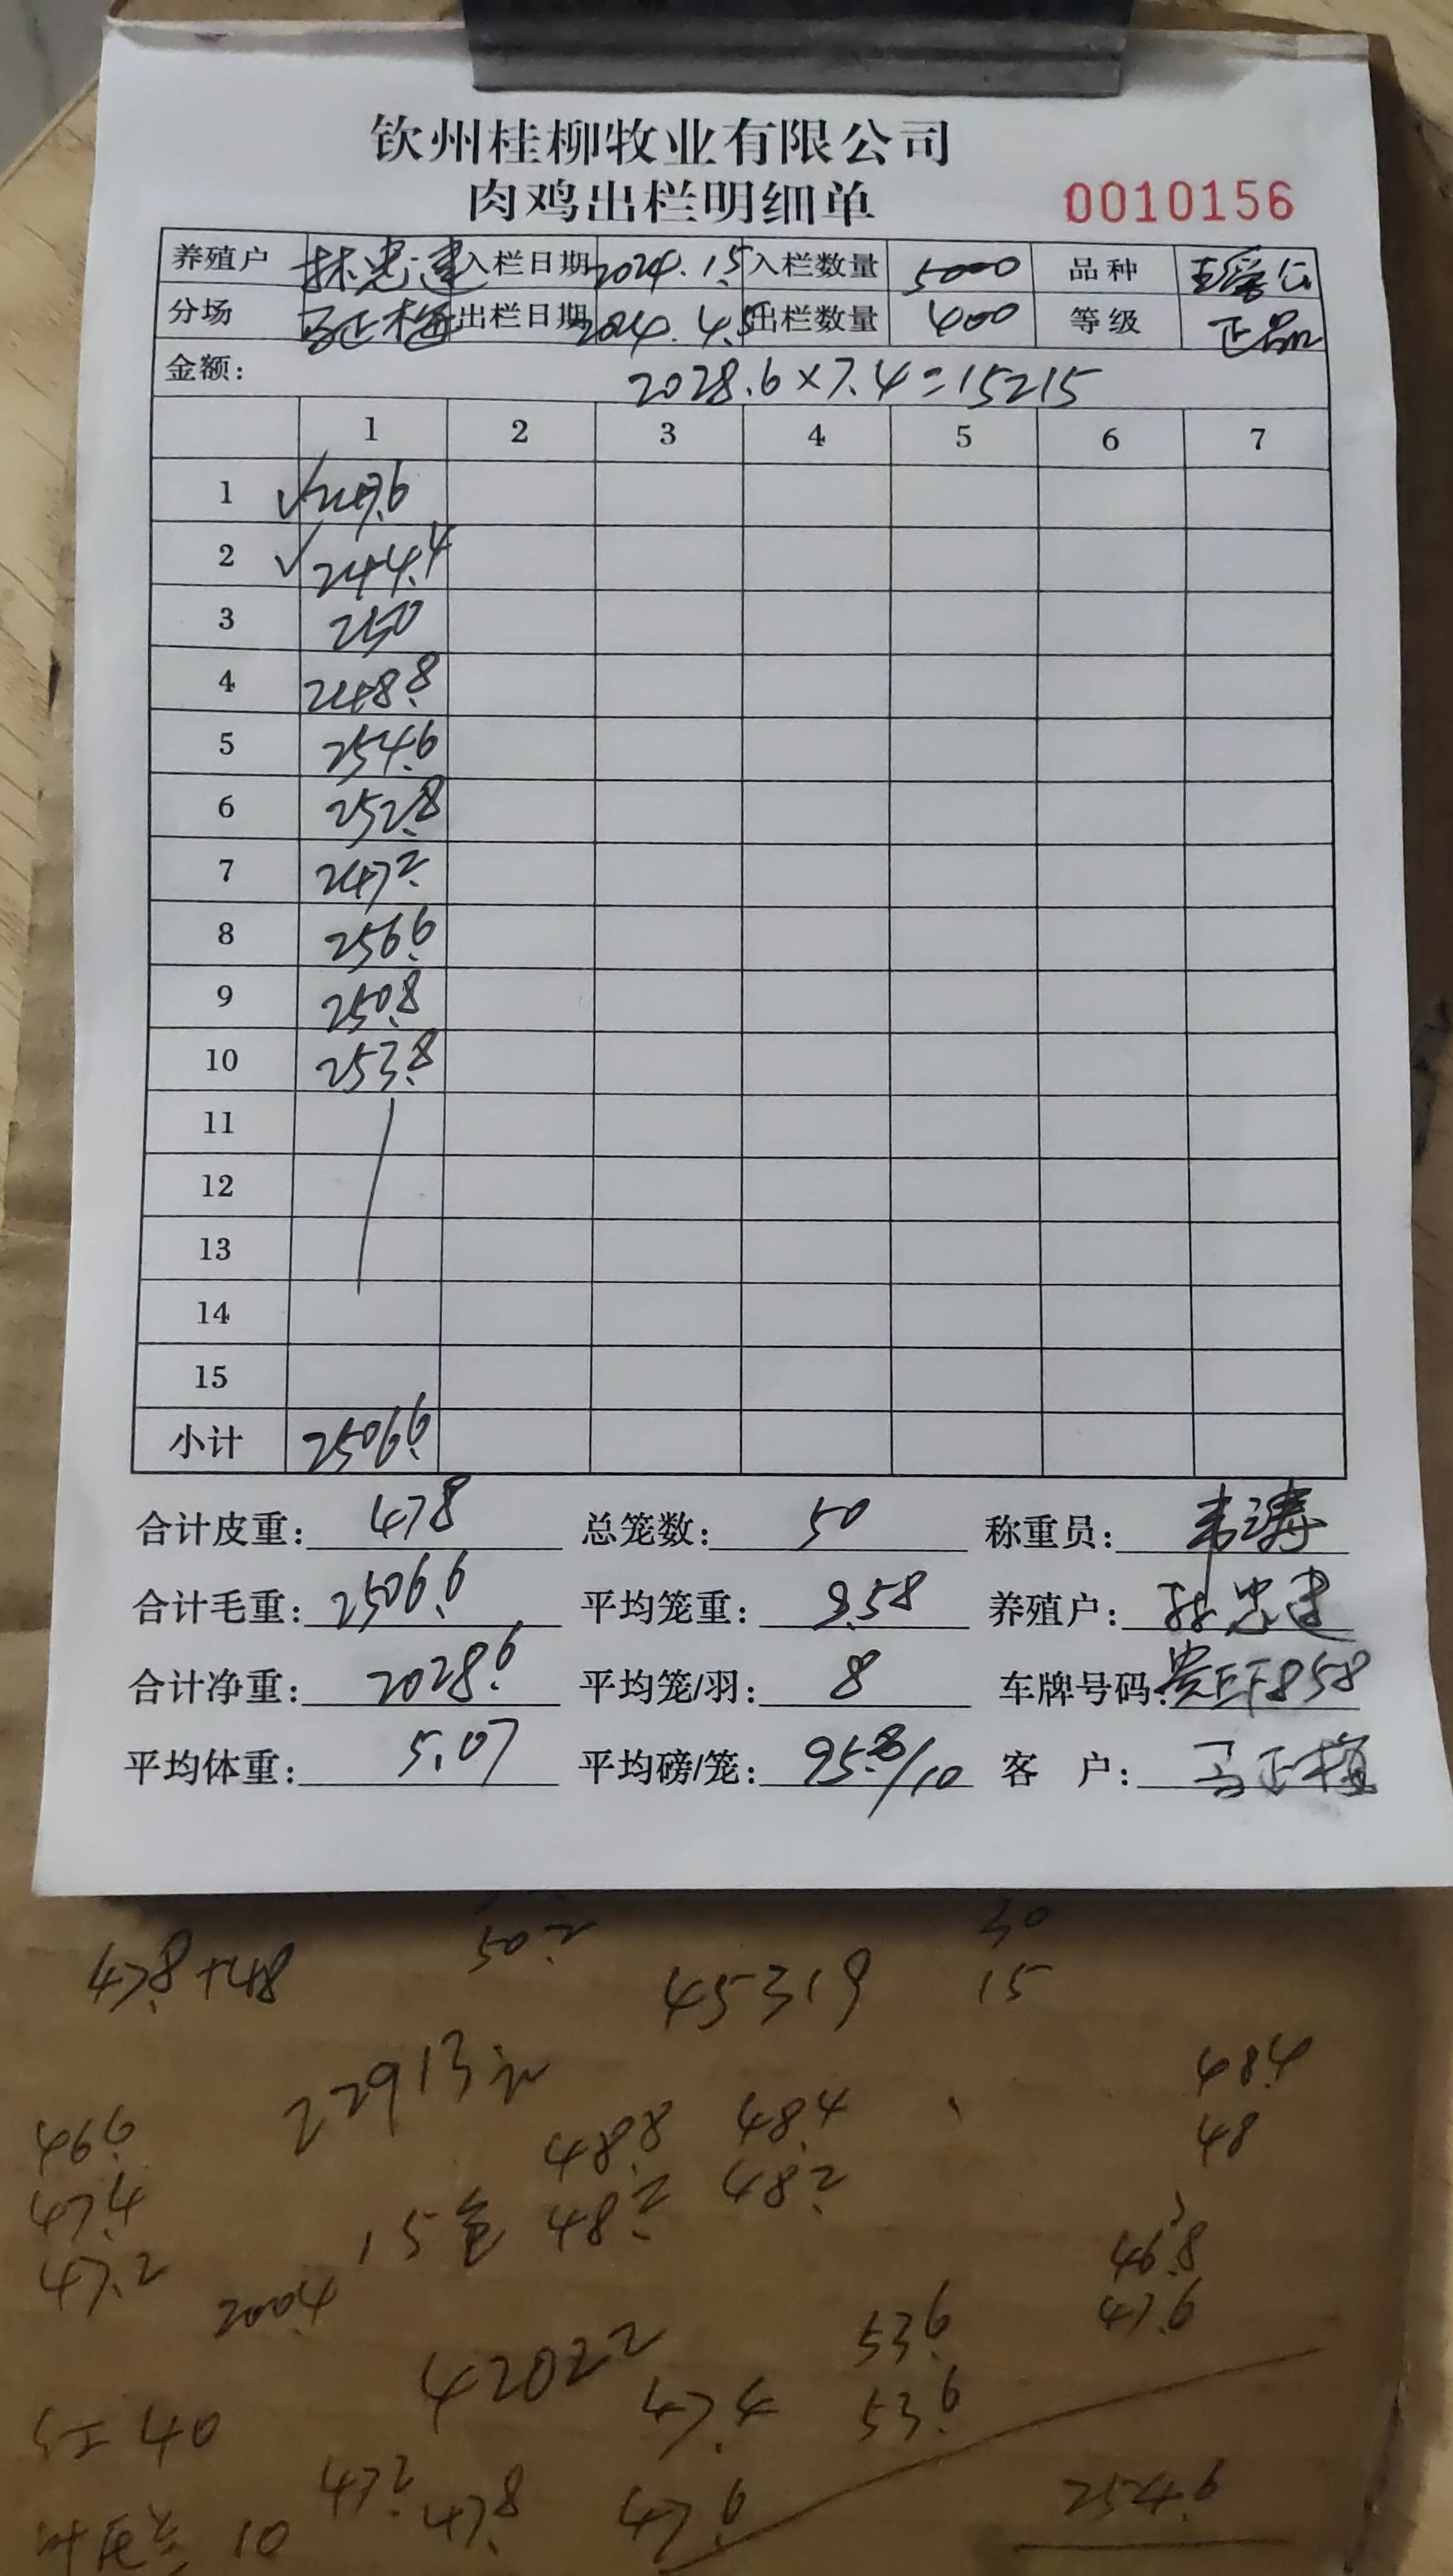 钦州桂柳牧业有限公司
肉鸡出栏明细单 0010156
养殖户 林忠建 入栏日期 2024.1.5 入栏数量 5000 品种
分场 马正梅 出栏日期 2024.4.5 出栏数量 400 等级 正品
金额: 2028.6×7.4=15215
1 2 3 4 5 6 7
1 ✓247.6
2 ✓244.4
3 250
4 248.8
5 254.6
6 252.8
7 247.2
8 256.6
9 250.8
10 253.8
11
12
13
14
15
小计 2506.6
合计皮重: 478 总笼数: 50 称重员: 韦涛
合计毛重: 2506.6 平均笼重: 9.58 养殖户: 林忠建
合计净重: 2028.6 平均笼/羽: 8 车牌号码:
平均体重: 5.07 平均磅/笼: 95.8/10 客 户: 马正梅
50.2 30
47.8+48 45319 15
22913元 48.4
46.6 48.8 48.4 48
47.4 15 48.2 48.2
47.2 46.8
200.4 53.6 47.6
42022
47.4 53.6
红 40
47.2 47.8 47.6 254.6
10